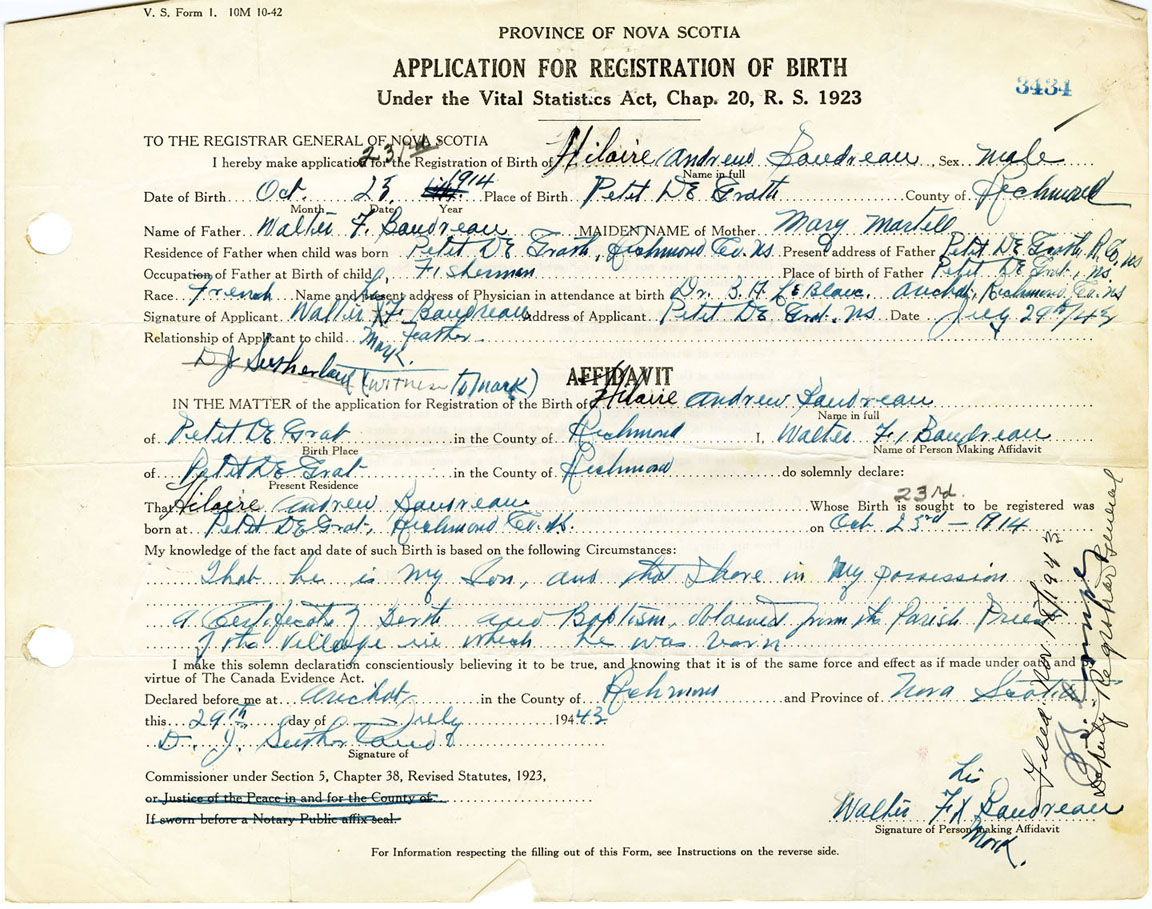 V. S. Form 1. 10M 10-42
PROVINCE OF NOVA SCOTIA
APPLICATION FOR REGISTRATION OF BIRTH
3434
Under the Vital Statistics Act, Chap. 20, R. S. 1923
TO THE REGISTRAR GENERAL OF NOVA SCOTIA
23rd
I hereby make application for the Registration of Birth of Hilaire Andrew Boudreau, Sex Male
Name in full
Date of Birth Oct. 23 1914 Place of Birth Petit DE Grath County of Richmond
Month Date Year
Name of Father Walter F. Boudreau MAIDEN NAME of Mother Mary Martell
Residence of Father when child was born Petit DE Grath, Richmond Co. NS. Present address of Father Petit DE Grath, R. Co, NS
Occupation of Father at Birth of child Fisherman Place of birth of Father Petit DE Grat, NS.
Race French Name and present address of Physician in attendance at birth Dr. B. A. LeBlanc, Arichat, Richmond Co. NS
his
Signature of Applicant Walter F X Boudreau Address of Applicant Petit DE Grat. NS Date July 29th/43
Relationship of Applicant to child Father
Mark.
D J Sutherland (witness to mark)
AFFIDAVIT
IN THE MATTER of the application for Registration of the Birth of Hilaire Andrew Boudreau
Name in full
of Petit DE Grat in the County of Richmond I, Walter F. Boudreau
Birth Place Name of Person Making Affidavit
of Petit DE Grat in the County of Richmond do solemnly declare:
Present Residence
That Hilaire Andrew Boudreau Whose Birth is sought to be registered was
23rd
born at Petit DE Grat, Richmond Co. NS. on Oct. 23rd - 1914
My knowledge of the fact and date of such Birth is based on the following Circumstances:
That he is my Son, and that I have in My possession
a Certificate of Birth and Baptism, obtained from the Parish Priest
of the Village in which he was born
I make this solemn declaration conscientiously believing it to be true, and knowing that it is of the same force and effect as if made under oath and
virtue of The Canada Evidence Act.
Declared before me at Arichat in the County of Richmond and Province of Nova Scotia
this 29th day of July 1943
D. J. Sutherland
Signature of
Commissioner under Section 5, Chapter 38, Revised Statutes, 1923,
or Justice of the Peace in and for the County of
If sworn before a Notary Public affix seal.
his
Walter F X Boudreau
Signature of Person making Affidavit
Mark.
For Information respecting the filling out of this Form, see Instructions on the reverse side.
Filed: Nov 18/1943
Deputy Registrar General